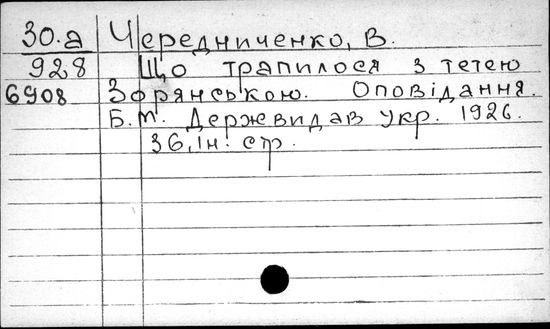 30.а Чередниченко, В.
928 Що трапилося з тетею
6908 Зорянською. Оповідання.
Б.м. Держвидав Укр. 1926.
36, Ін. стр.